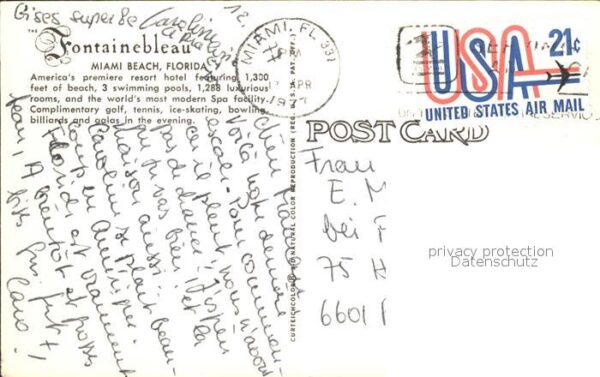 Bises super de Caroline
THE
Fontainebleau
MIAMI BEACH, FLORIDA
America's premiere resort hotel featuring 1,300
feet of beach, 3 swimming pools, 1,288 luxurious
rooms, and the world's most modern Spa facility.
Complimentary golf, tennis, ice-skating, bowling,
billiards and galas in the evening.
MIAMI, FL. 331
PM
APR
USA
21¢
UNITED STATES AIR MAIL
POST CARD
CURTEICHCOLOR® 3-D NATURAL COLOR REPRODUCTION (REG. U.S.A. PAT. OFF.)
Voilà notre dernière
escale. Pour commencer
car il pleut, nous n'avons
pas de chance. J'espère
que tu vas bien et la
maison aussi.
Caroline se plait beau-
coup en Amérique.
Florida est vraiment
beau! A bientôt et grosses
bises
Caro.
Frau
E. M
bei F
75 H
6601
privacy protection
Datenschutz